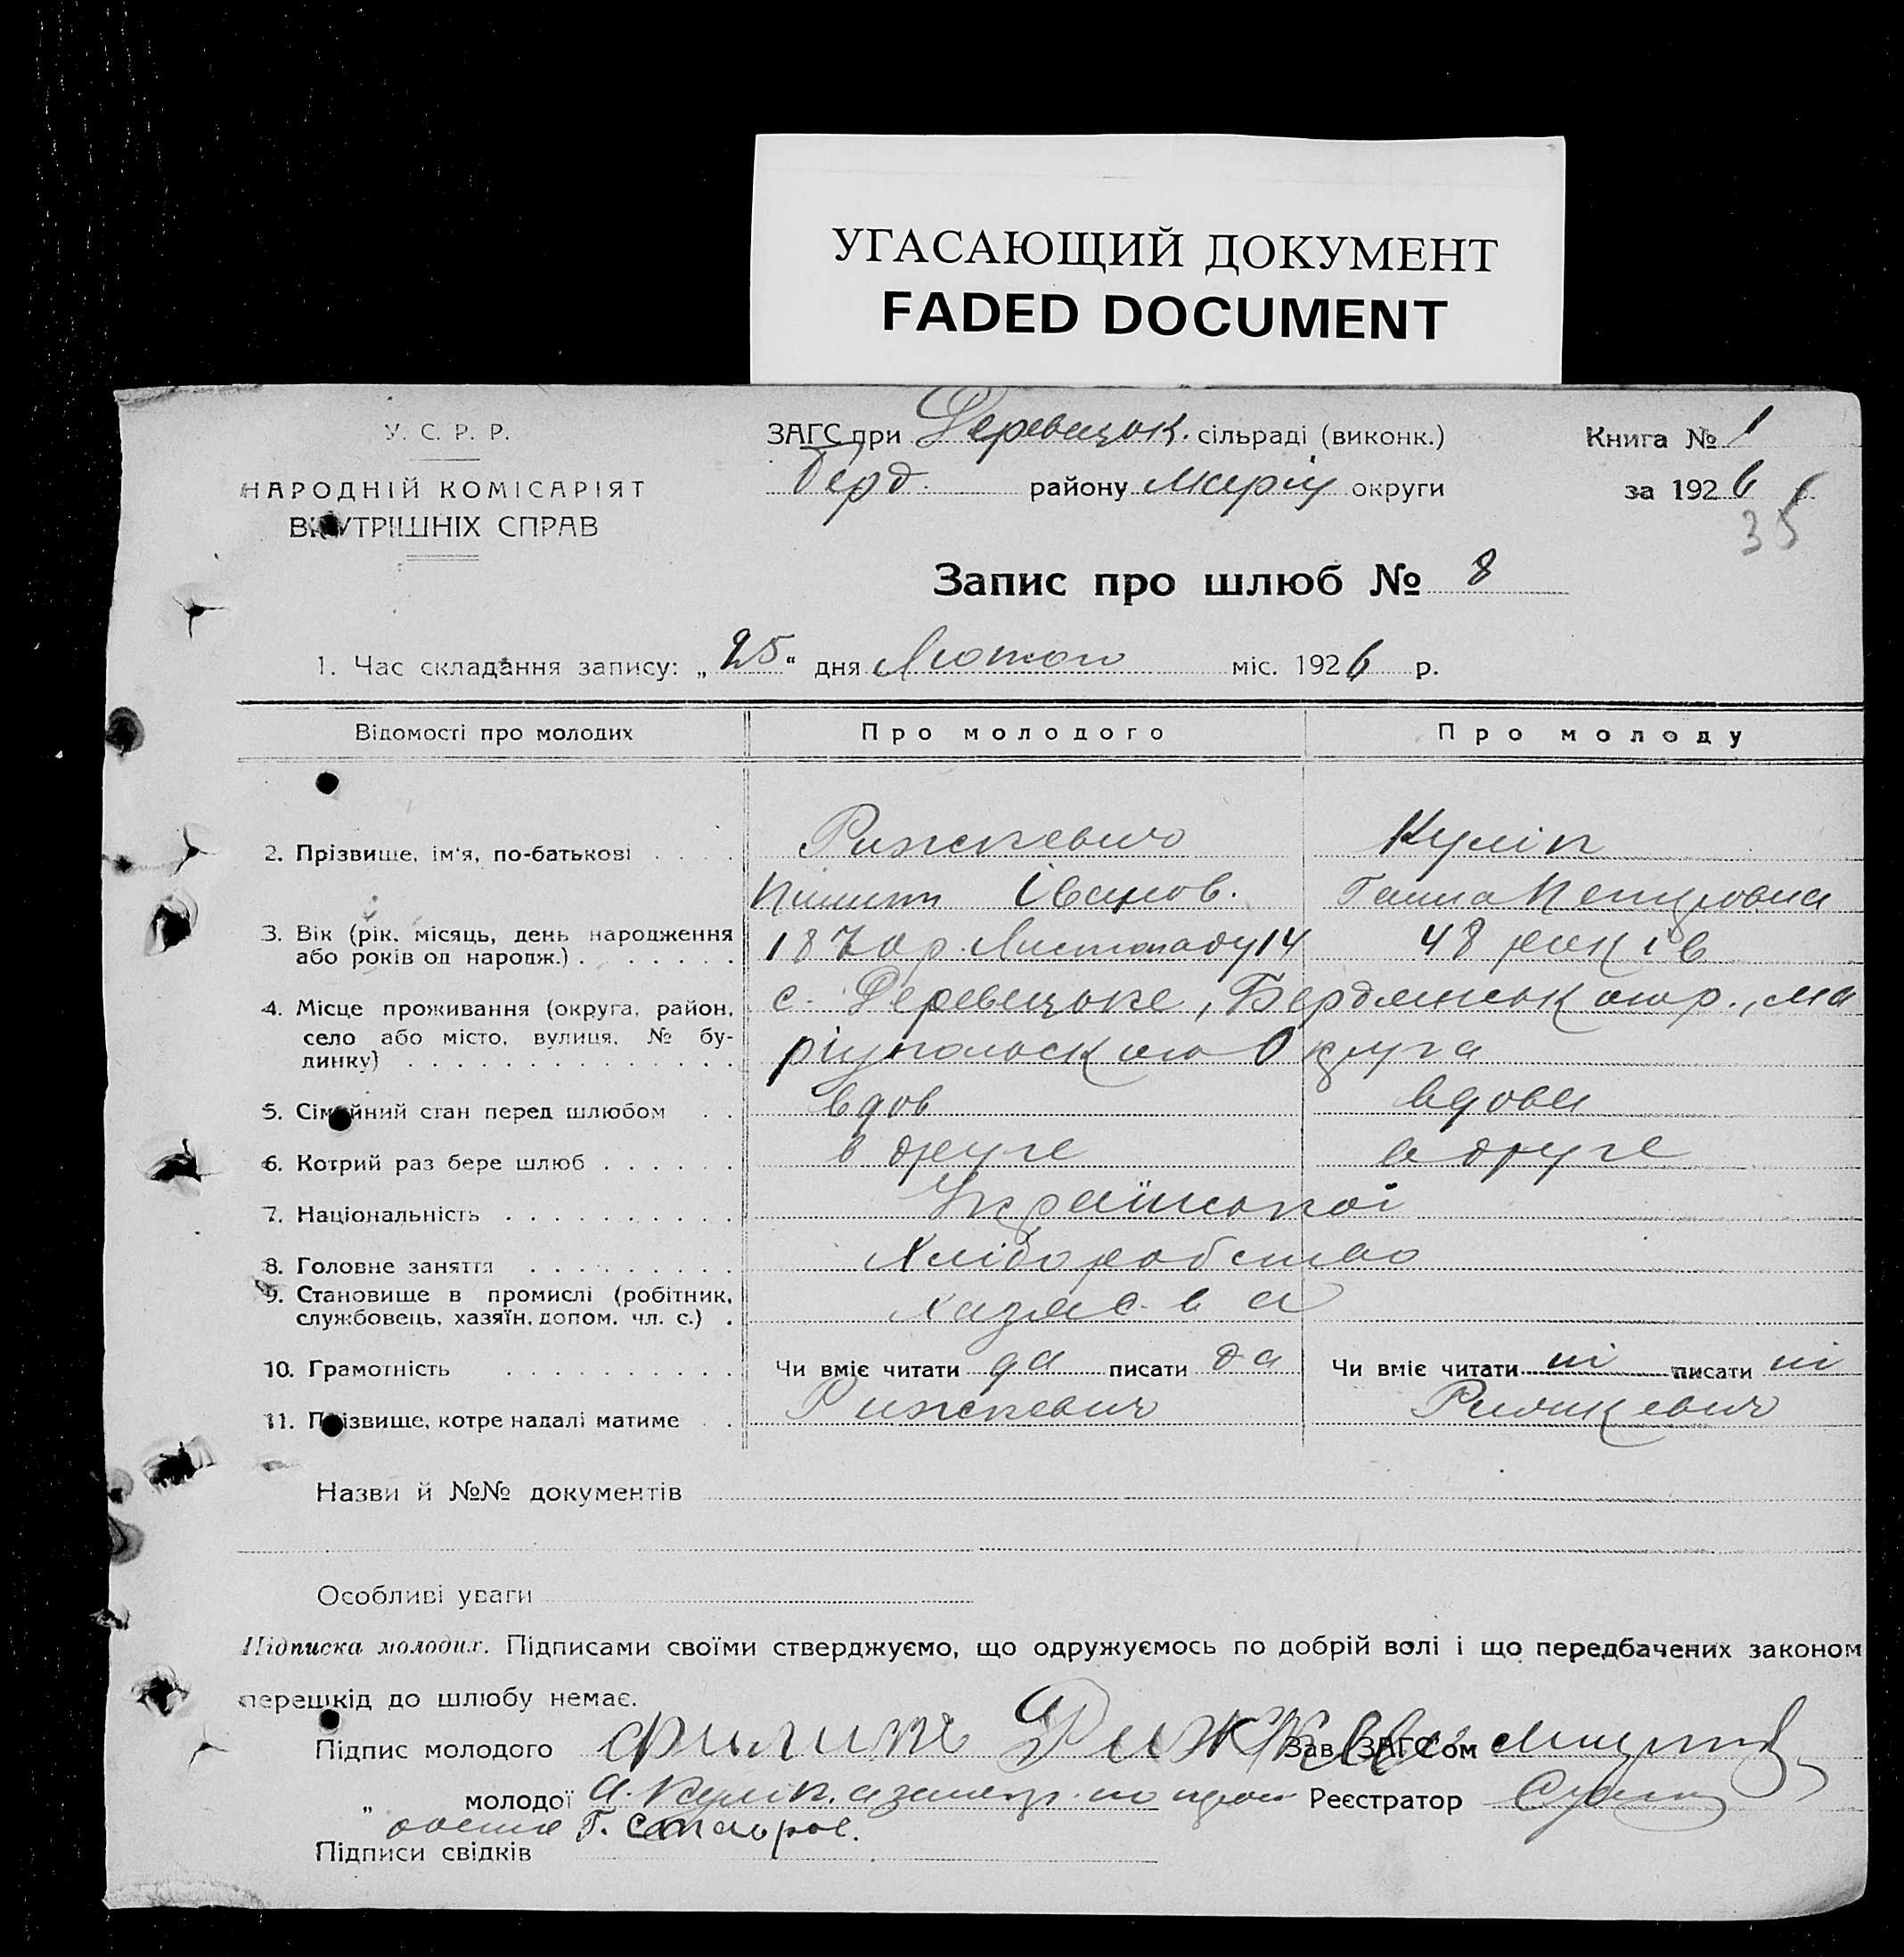 УГАСАЮЩИЙ ДОКУМЕНТ
FADED DOCUMENT
У. С. Р. Р.
НАРОДНІЙ КОМІСАРІЯТ
ВНУТРІШНІХ СПРАВ
ЗАГС при Деревецьк. сільраді (виконк.)
Берд. району Маріу округи
Книга № 1
за 1926
35
Запис про шлюб № 8
1. Час складання запису: „25“ дня Лютого міс. 1926 р.
Відомості про молодих Про молодого Про молоду
2. Прізвище, ім'я, по-батькові . . . . Рижкевич Кулік
Пилип Іванов. Ганна Петровна
3. Вік (рік, місяць, день народження
або років од народж.) . . . . . . . 1870 р. Листопаду 14 48 років
4. Місце проживання (округа, район,
село або місто, вулиця, № бу-
динку) . . . . . . . . . . . . . .
с. Деревецьке, Бердянськ ого р., Ма
ріупольськ ого Округа
5. Сімейний стан перед шлюбом . . вдов вдова
6. Котрий раз бере шлюб . . . . . . в друге в друге
7. Національність . . . . . . . . . . Української
8. Головне заняття . . . . . . . . . Хліборобство
9. Становище в промислі (робітник,
службовець, хазяїн, допом. чл. с.) .
10. Грамотність . . . . . . . . . . Чи вміє читати да писати да Чи вміє читати ні писати ні
11. Прізвище, котре надалі матиме . . Рижкевич Рижкевич
Назви й №№ документів
Особливі уваги
Підписка молодих. Підписами своїми стверджуємо, що одружуємось по добрій волі і що передбачених законом
перешкід до шлюбу немає.
Підпис молодого Филип Рижкевич Зав. ЗАГС'ом
„ молодої А. Кулік. Реєстратор
Підписи свідків